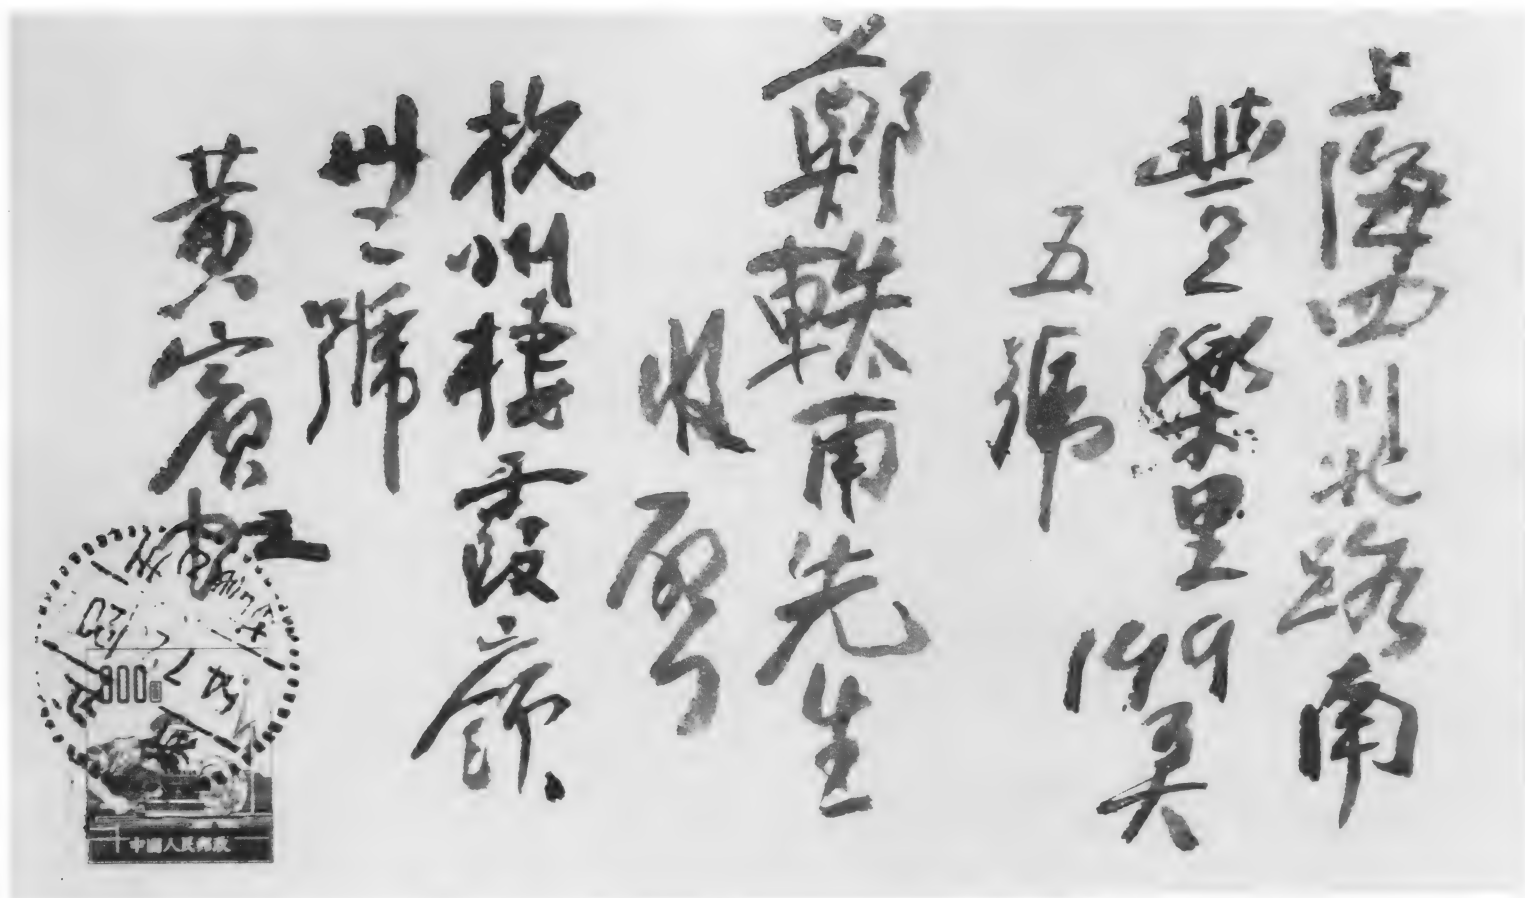 上海四川北路南
豐樂里199弄
五號
鄭軼甫先生
收啓
杭州棲霞嶺
卅二號
黃賓虹
800
中國人民郵政